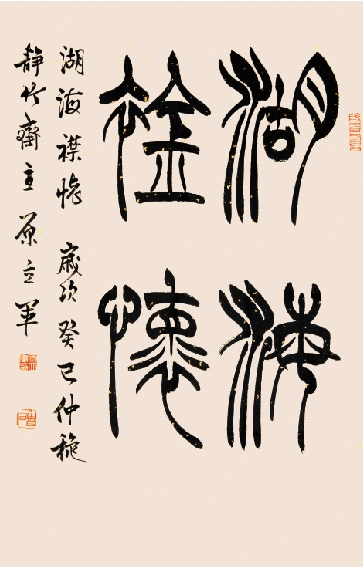 湖海
襟懷
湖海襟懷 歲次癸巳仲龝
静竹齋主 原立军